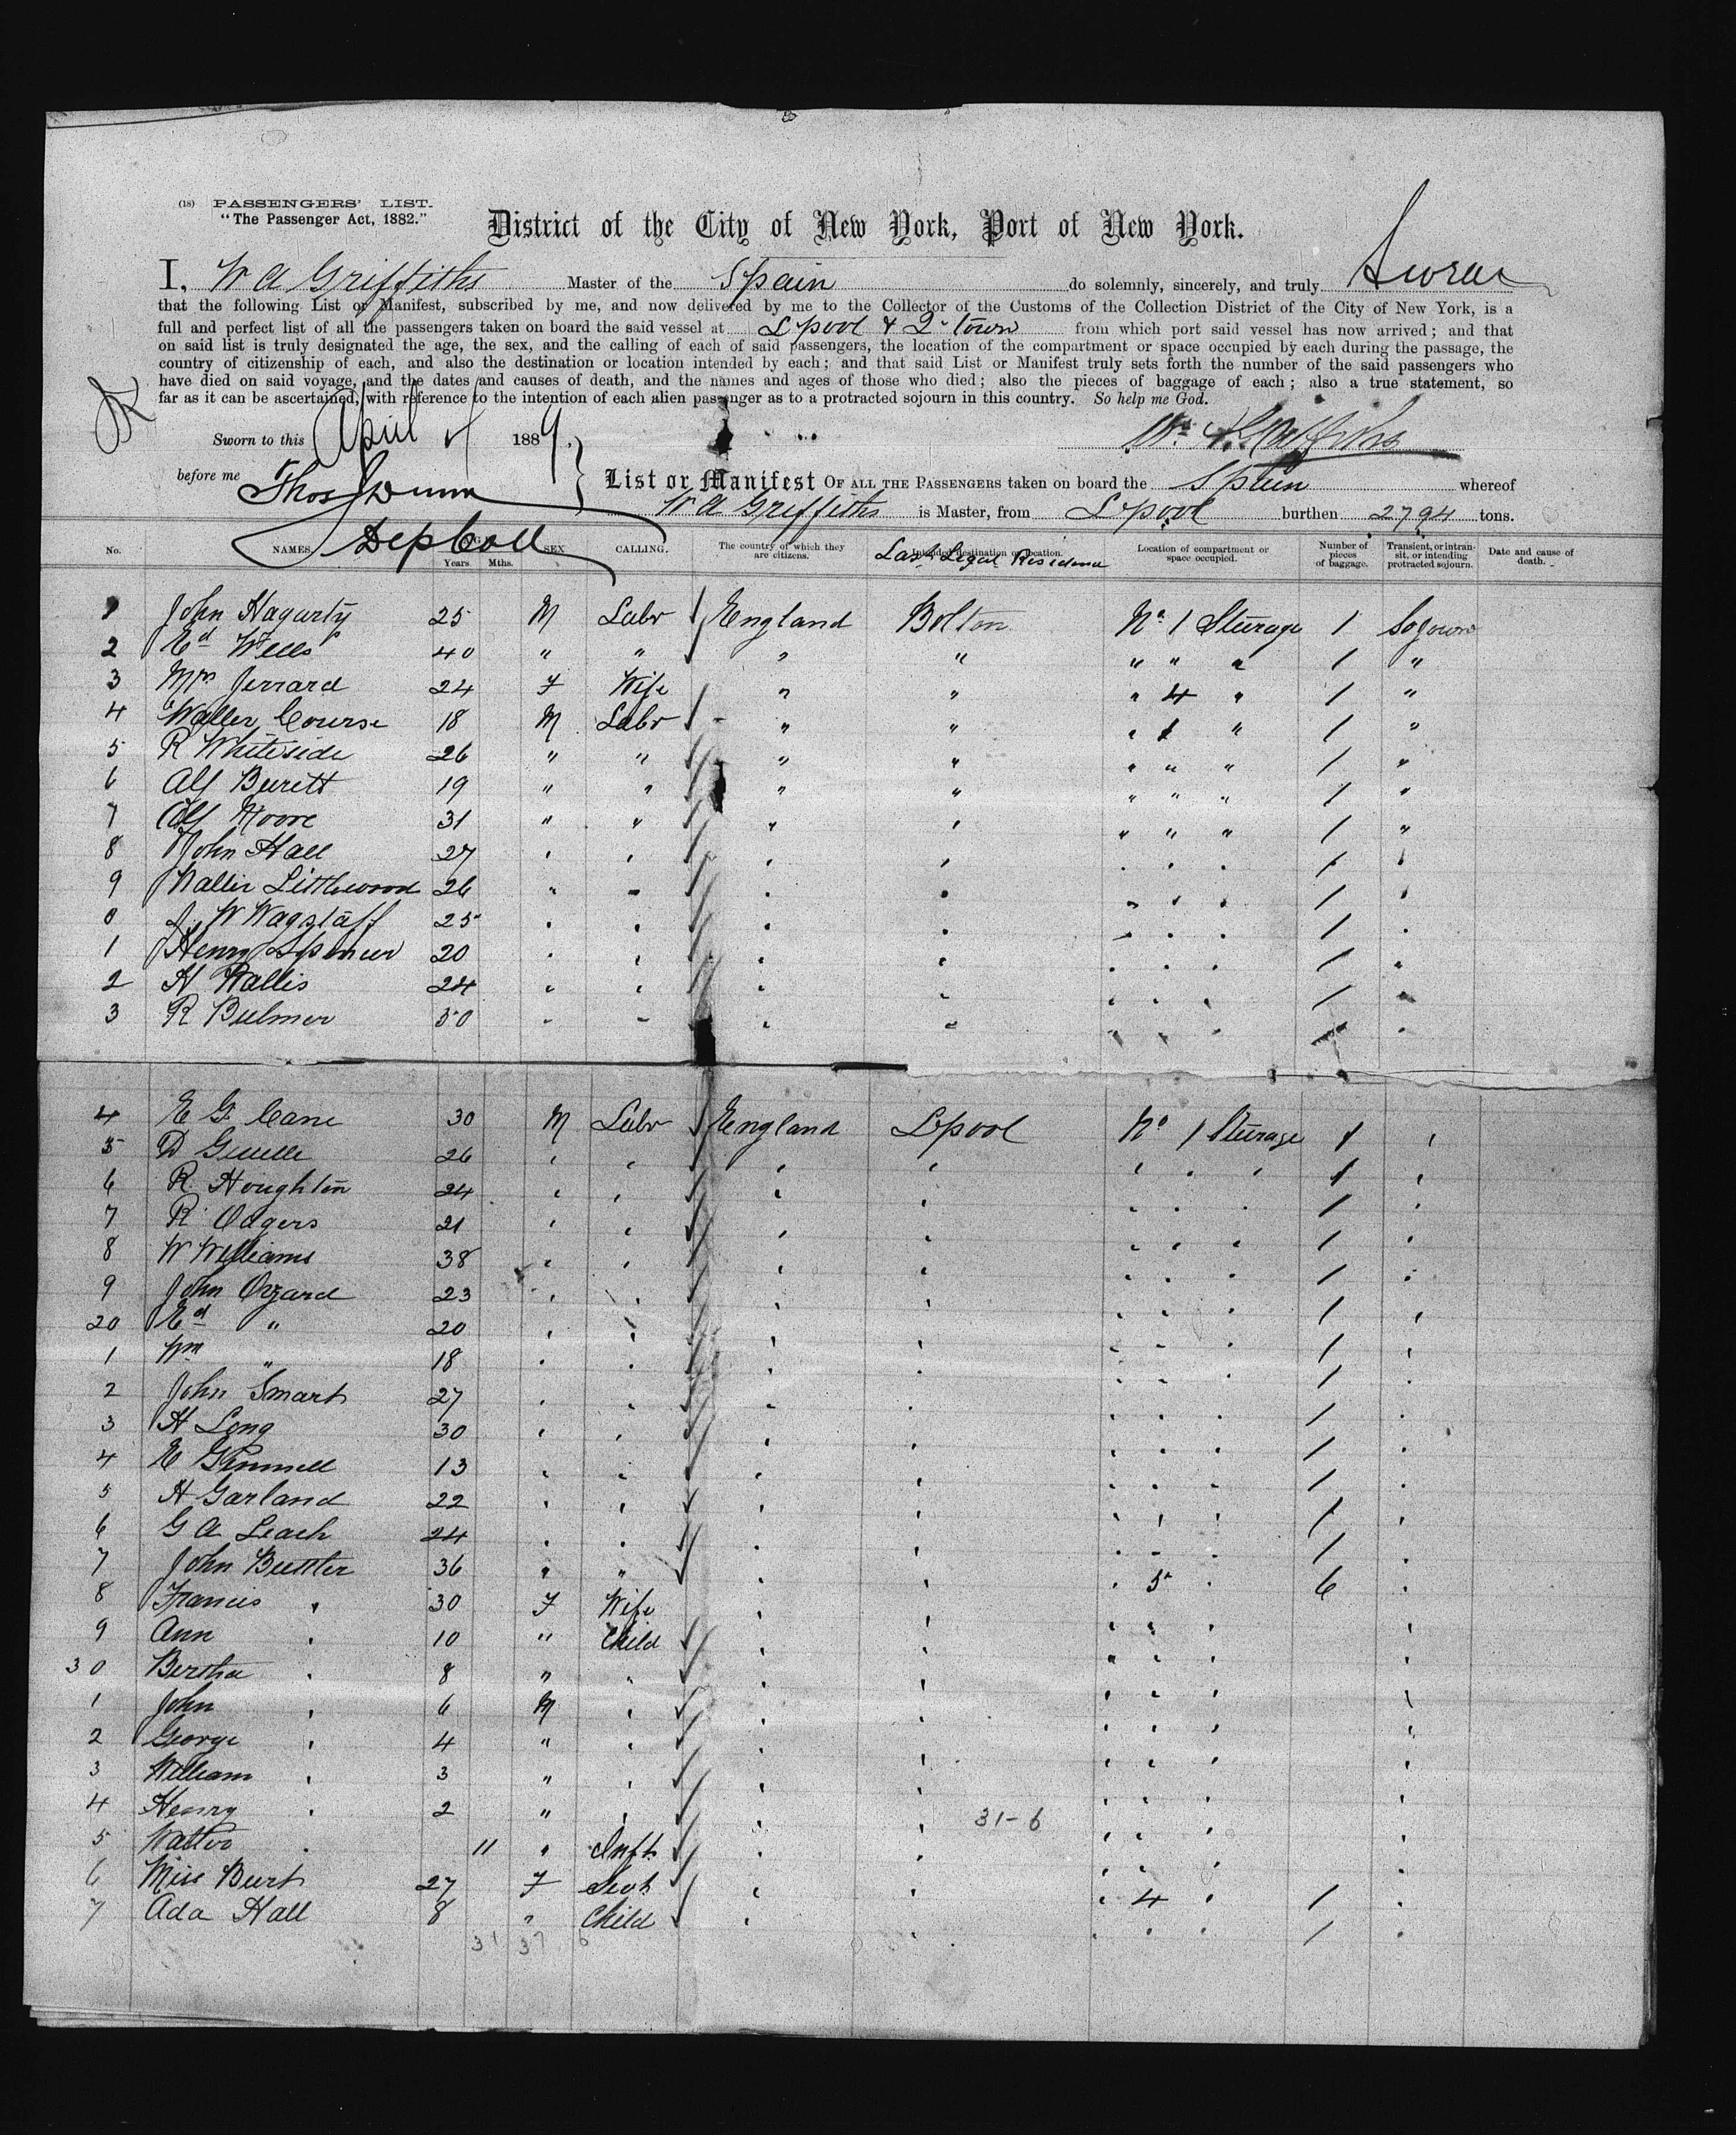 (18) PASSENGERS' LIST.
"The Passenger Act, 1882."
District of the City of New York, Port of New York.
I, W A Griffiths Master of the Spain do solemnly, sincerely, and truly Swear
that the following List or Manifest, subscribed by me, and now delivered by me to the Collector of the Customs of the Collection District of the City of New York, is a
full and perfect list of all the passengers taken on board the said vessel at L'pool & Q-town from which port said vessel has now arrived; and that
on said list is truly designated the age, the sex, and the calling of each of said passengers, the location of the compartment or space occupied by each during the passage, the
country of citizenship of each, and also the destination or location intended by each; and that said List or Manifest truly sets forth the number of the said passengers who
have died on said voyage, and the dates and causes of death, and the names and ages of those who died; also the pieces of baggage of each; also a true statement, so
far as it can be ascertained, with reference to the intention of each alien passenger as to a protracted sojourn in this country. So help me God.
Sworn to this April 4 1889.
Wm A Griffiths
before me Thos Dunn
Dep Coll
List or Manifest OF ALL THE PASSENGERS taken on board the Spain whereof
W A Griffiths is Master, from L'pool burthen 2794 tons.
No. NAMES. AGE. Years. Mths. SEX CALLING. The country of which they are citizens. Intended destination or location. Last Legal Residence Location of compartment or space occupied. Number of pieces of baggage. Transient, or intransit, or intending protracted sojourn. Date and cause of death.
1 John Hagarty 25 M Labr England Bolton No 1 Steerage 1 Sojourn
2 Ed Wells 40 " " " " " " " 1 "
3 Mrs Jerrard 24 F Wife " " " 4 " 1 "
4 Walter Course 18 M Labr " " " 1 " 1 "
5 R Whiteside 26 " " " " " " " 1 "
6 Alf 19 " " " " " " " 1 "
7 Alf Moore 31 " " " " " " " 1 "
8 John Hall 27 " " " " " " " 1 "
9 Walter Littlewood 26 " " " " " " " 1 "
0 J. W Wagstaff 25 " " " " " " " 1 "
1 Henry Spencer 20 " " " " " " " 1 "
2 H Wallis 24 " " " " " " " 1 "
3 R Bulmer 50 " " " " " " " 1 "
4 E G Cane 30 M Labr England L'pool No 1 Steerage 1 "
5 D 26 " " " " " " " 1 "
6 R Houghton 24 " " " " " " " 1 "
7 R Odgers 21 " " " " " " " 1 "
8 W Williams 38 " " " " " " " 1 "
9 John Orgard 23 " " " " " " " 1 "
20 Ed " 20 " " " " " " " 1 "
1 Wm " 18 " " " " " " " 1 "
2 John Smart 27 " " " " " " " 1 "
3 H Long 30 " " " " " " " 1 "
4 E 13 " " " " " " " 1 "
5 H Garland 22 " " " " " " " 1 "
6 G A Leach 24 " " " " " " " 1 "
7 John Buttler 36 " " " " " 5 " 6 "
8 Francis " 30 F Wife " " " " " "
9 Ann " 10 " Child " " " " " "
30 Bertha " 8 " " " " " " " "
1 John " 6 M " " " " " " "
2 George " 4 " " " " " " " "
3 William " 3 " " " " " " " "
4 Henry " 2 " " " " " " " "
31-6
5 Walter " 11 " Inft " " " " " "
6 Miss Burt 27 F Servt " " " 4 " 1 "
7 Ada Hall 8 " Child " " " " " 1 "
31 37 6